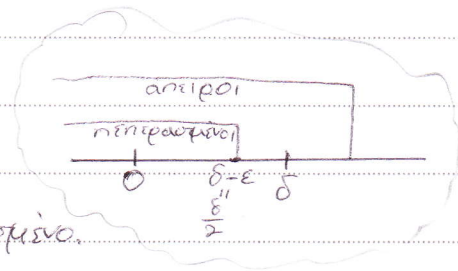 άπειροι
πεπερασμένοι
0 δ-ε δ
"
δ
2
σμένο.